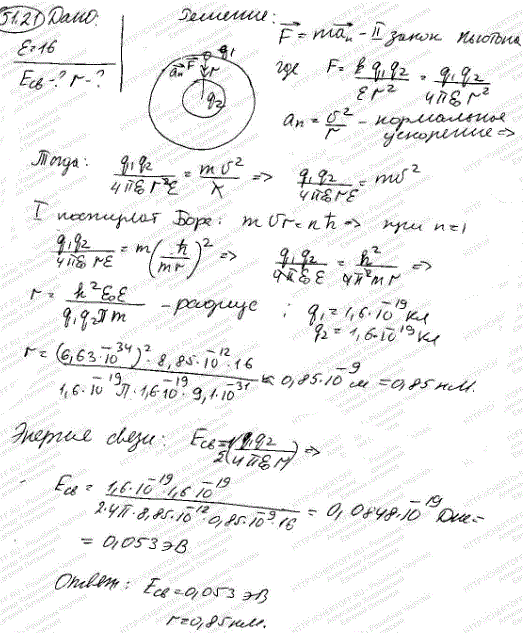 51.21 Дано: Решение:
ε=16
Eсв-? r-?
q₁
aₙ F r
q₂
F = maₙ - II закон Ньютона
где F = k q₁q₂ / εr² = q₁q₂ / 4πε₀r²
aₙ = υ²/r - нормальное ускорение ⇒
Тогда: q₁q₂ / 4πε₀r²ε = mυ²/r ⇒ q₁q₂ / 4πε₀rε = mυ²
I постулат Бора: mυr = nħ ⇒ при n=1
q₁q₂ / 4πε₀rε = m(ħ/mr)² ⇒ q₁q₂ / 4πε₀ε = h² / 4π²mr ⇒
r = h²ε₀ε / q₁q₂πm - радиус ; q₁ = 1,6·10⁻¹⁹ Кл
q₂ = 1,6·10⁻¹⁹ Кл
r = (6,63·10⁻³⁴)²·8,85·10⁻¹²·16 / 1,6·10⁻¹⁹π·1,6·10⁻¹⁹·9,1·10⁻³¹ = 0,85·10⁻⁹ м = 0,85 нм.
Энергия связи: Eсв = 1/2 (q₁q₂ / 4πε₀r) ⇒
Eсв = 1,6·10⁻¹⁹·1,6·10⁻¹⁹ / 2·4π·8,85·10⁻¹²·0,85·10⁻⁹·16 = 0,0848·10⁻¹⁹ Дж =
= 0,053 эВ
Ответ: Eсв = 0,053 эВ
r = 0,85 нм.